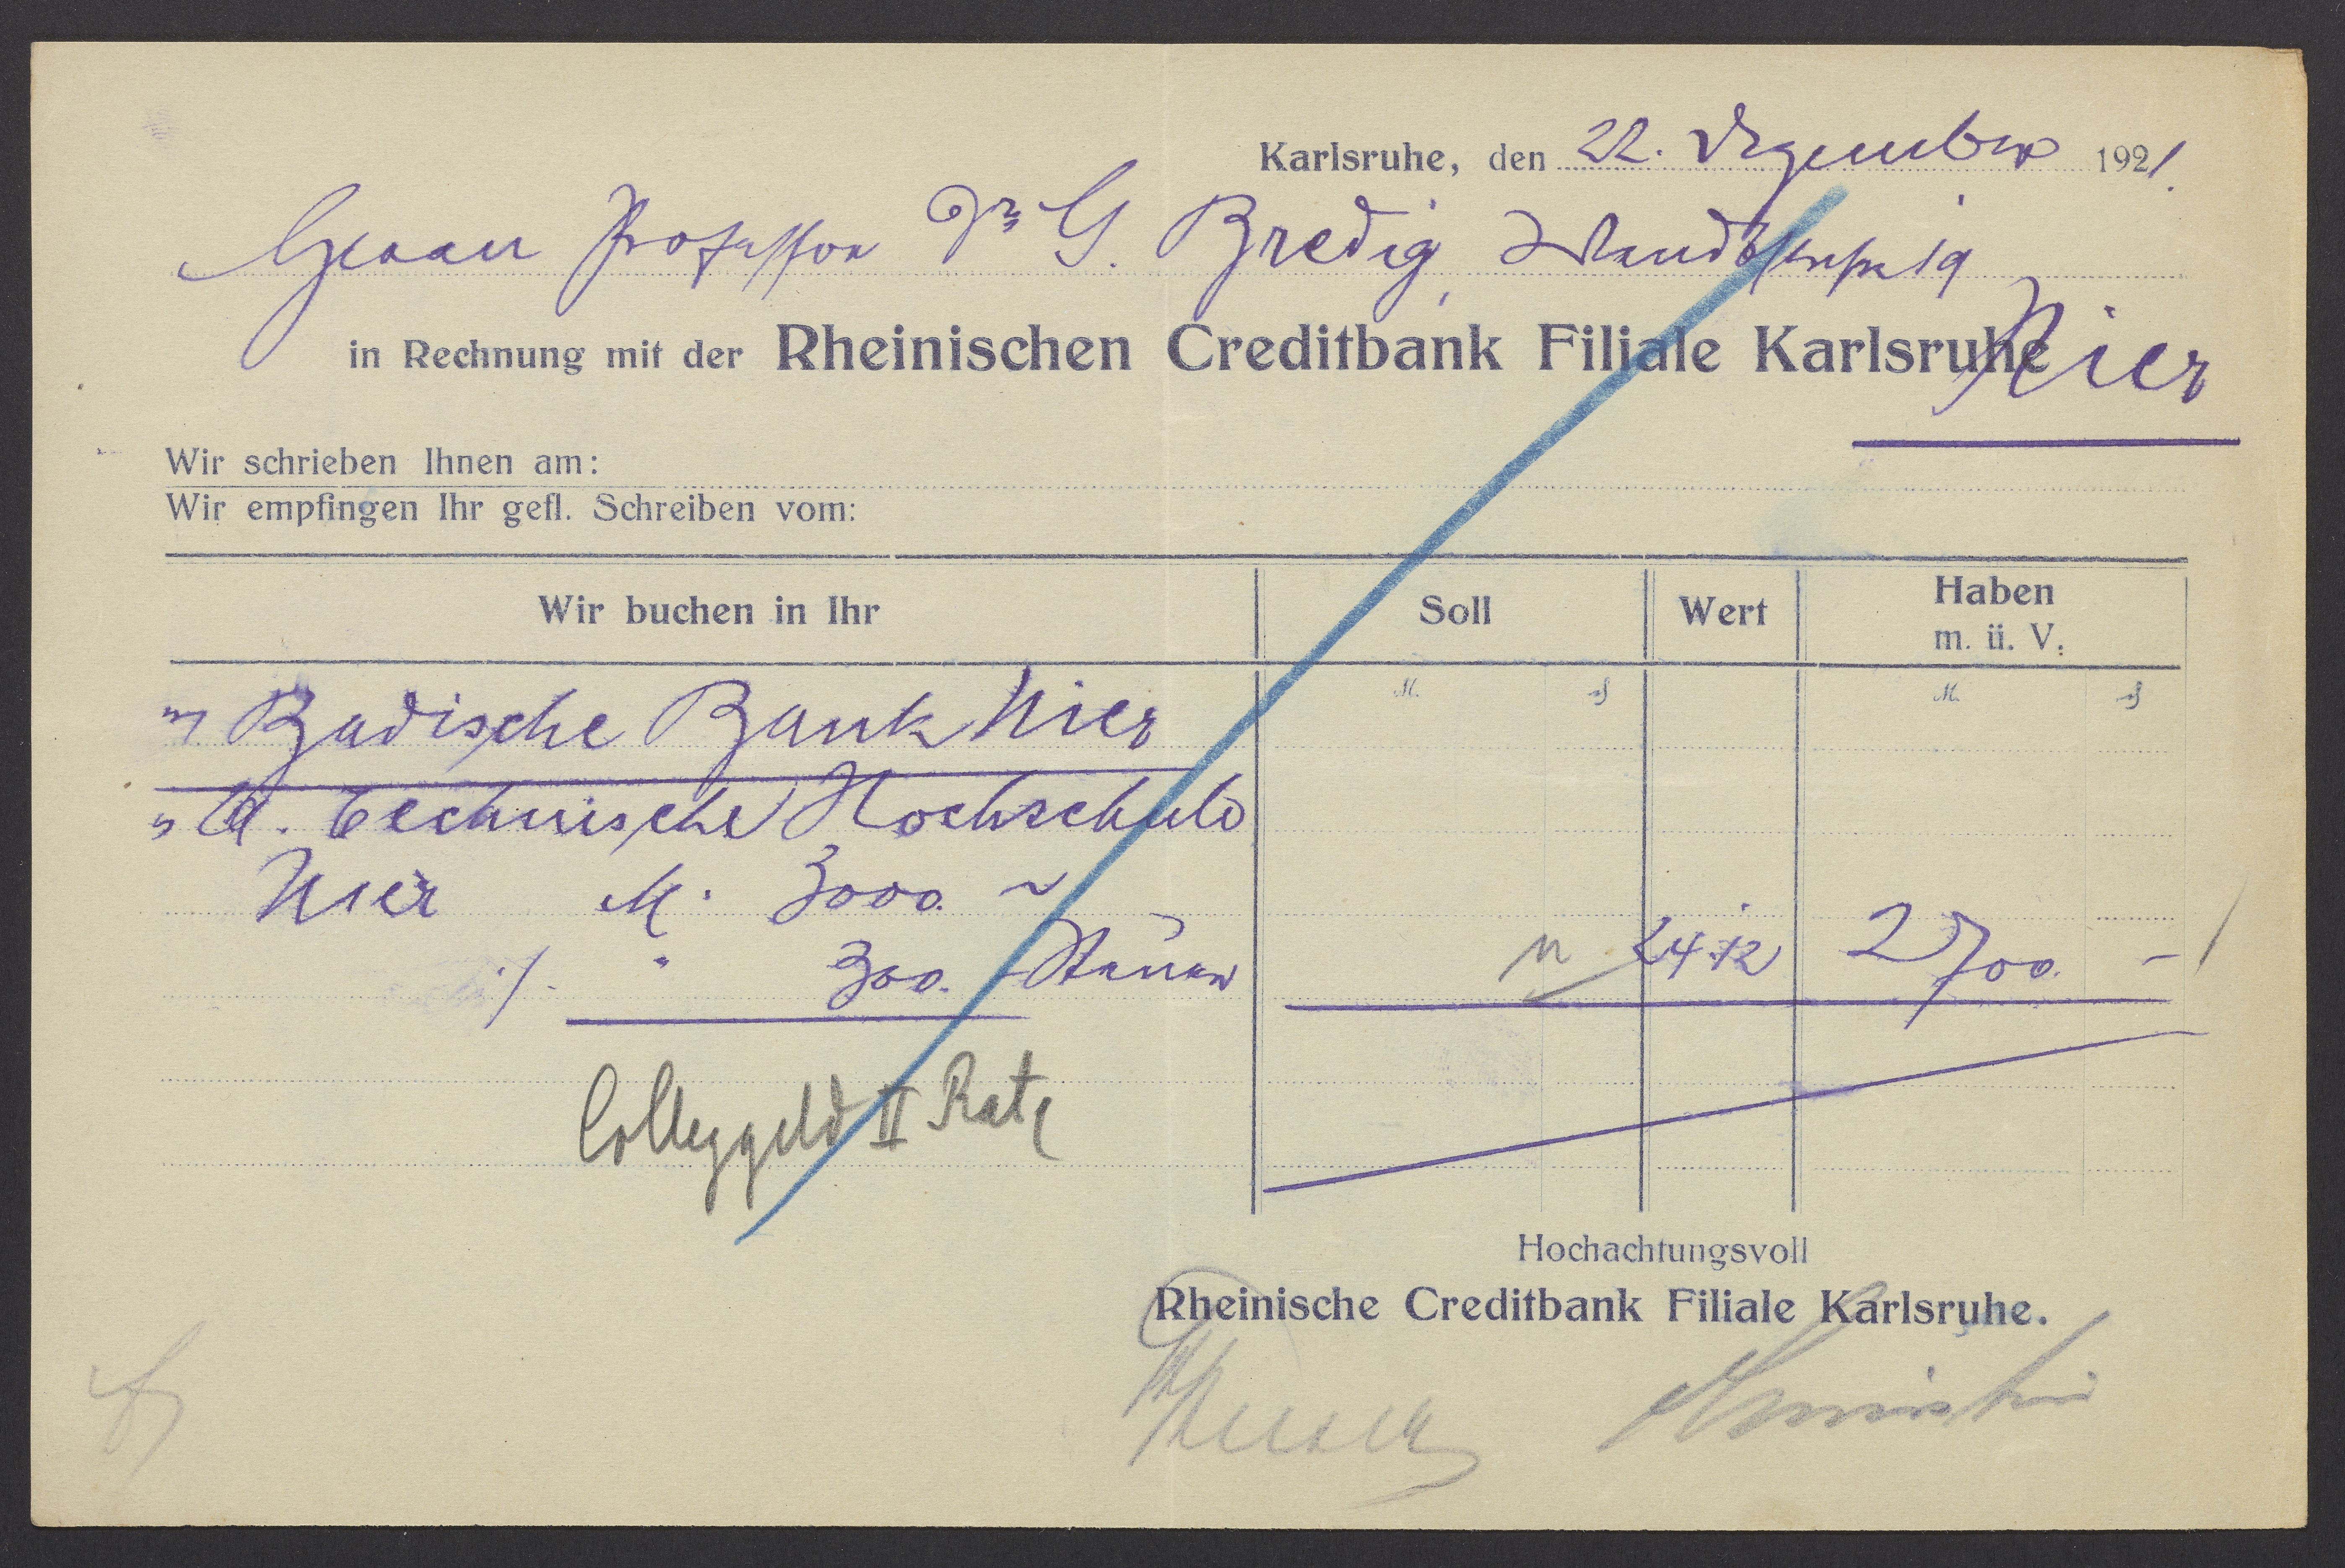 Karlsruhe, den 22. Dezember 1921.
Herrn Professor Dr G. Bredig,
in Rechnung mit der Rheinischen Creditbank Filiale Karlsruhe
Hier
Wir schrieben Ihnen am:
Wir empfingen Ihr gefl. Schreiben vom:
Wir buchen in Ihr Soll Wert Haben
m. ü. V.
M. ₰ M. ₰
Badische Bank hier
" A. Technische Hochschule
hier M. 3000. ~
./. " 300. - Steuer 24.12 2700. -
Colleggeld II Rate
Hochachtungsvoll
Rheinische Creditbank Filiale Karlsruhe.